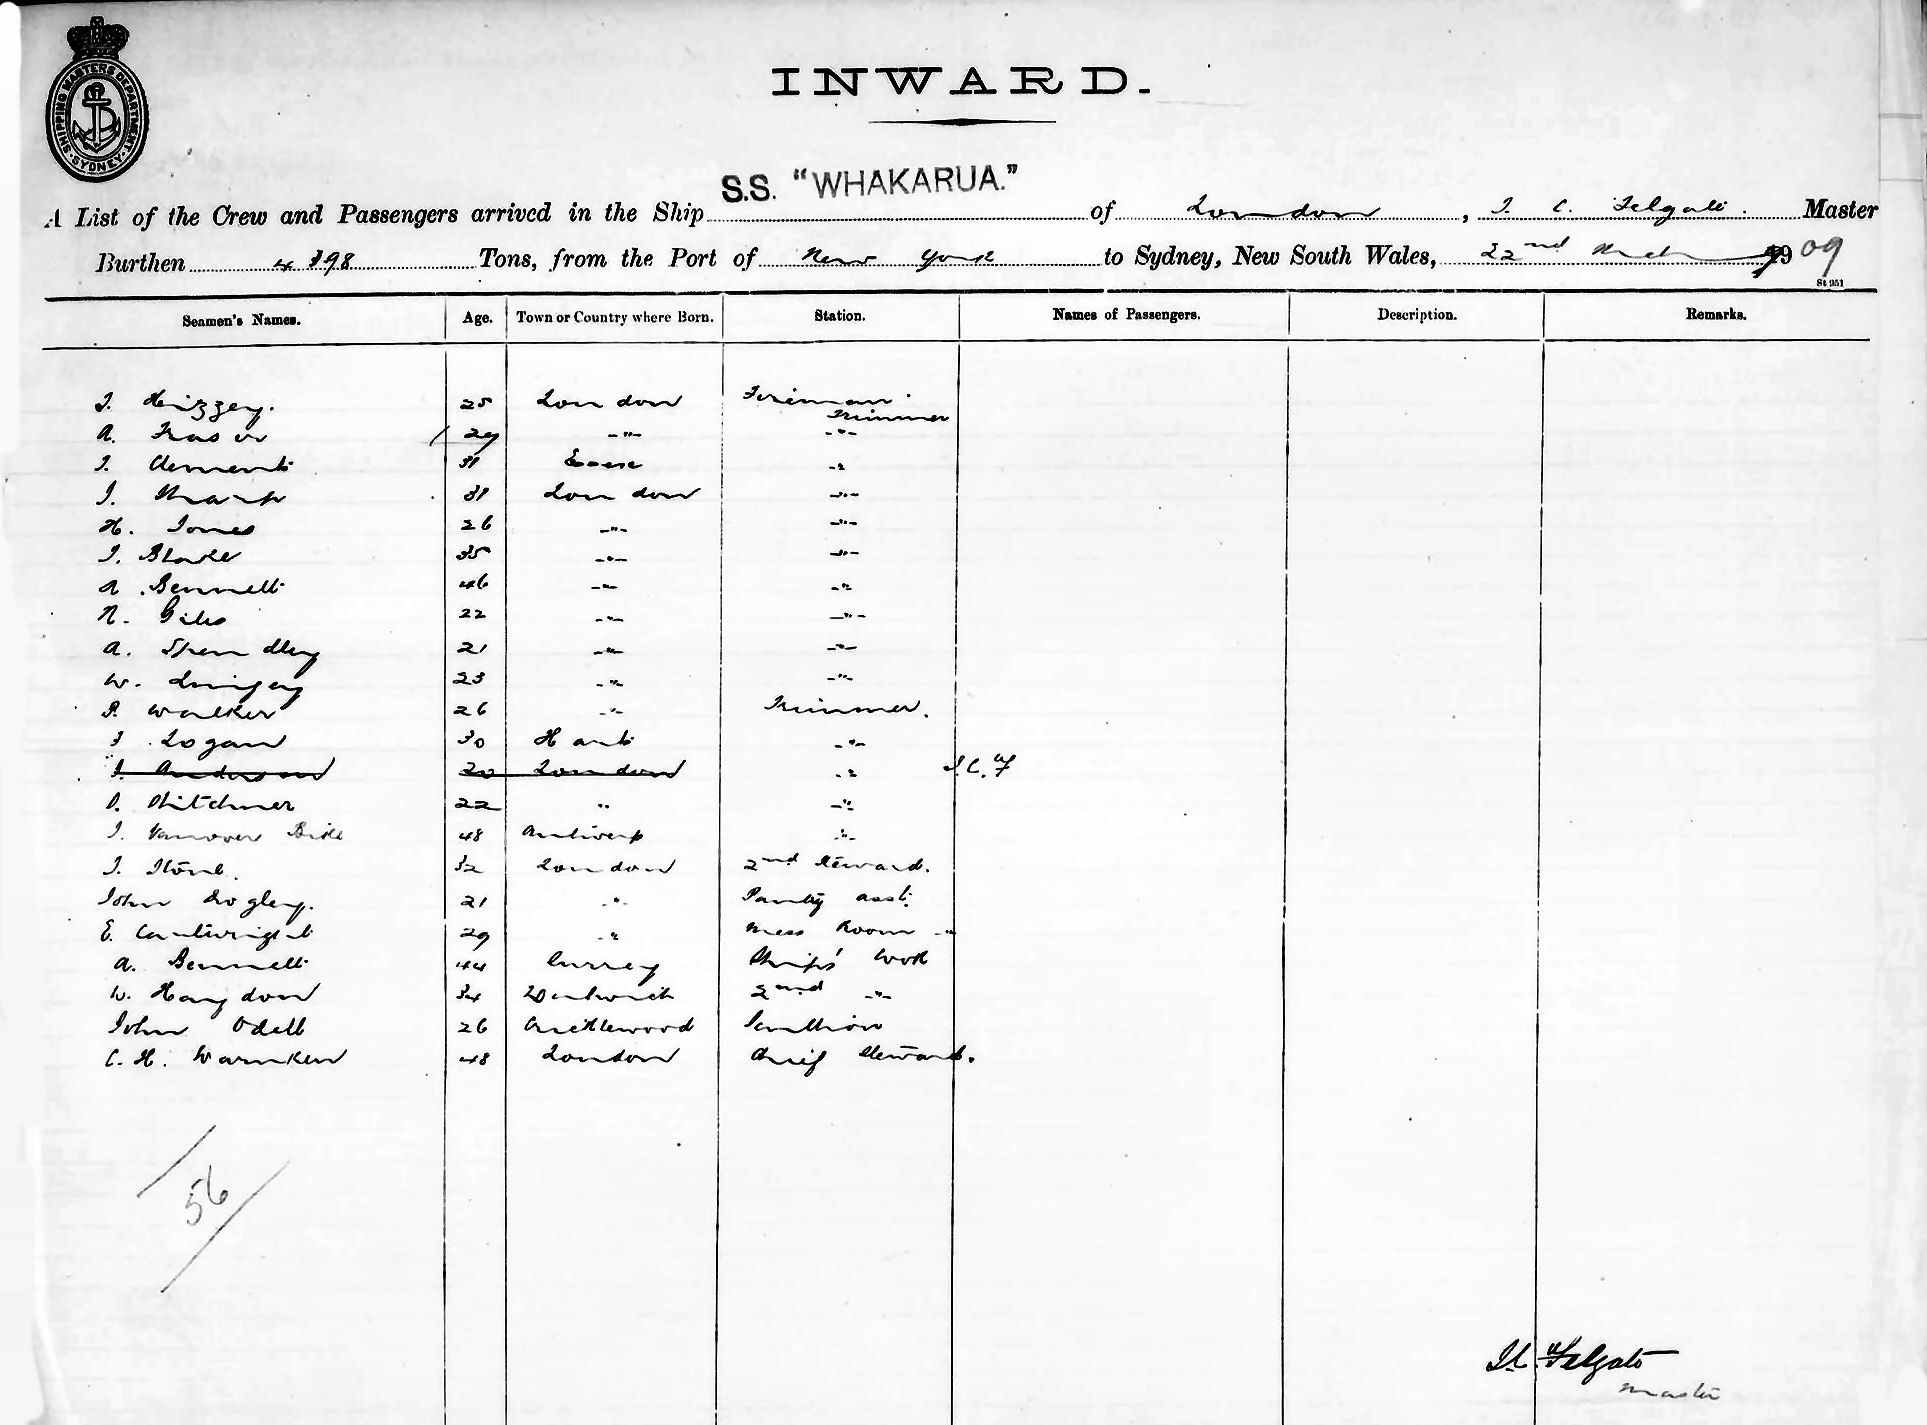 SHIPPING MASTERS DEPARTMENT · SYDNEY ·
INWARD.
S.S. "WHAKARUA."
A List of the Crew and Passengers arrived in the Ship of London, J. C. Felgate. Master
Burthen 4898 Tons, from the Port of New York to Sydney, New South Wales, 22nd March 1909
St 951
Seamen's Names. Age. Town or Country where Born. Station. Names of Passengers. Description. Remarks.
25 London Fireman.
Trimmer
A. Fraser 29 -"- -"-
J. Clements 31 -"-
J. 31 London -"-
H. Jones 26 -"- -"-
J. Blake 35 -"- -"-
A. Bennett 46 -"- -"-
N. Giles 22 -"- -"-
A. Spendley 21 -"- -"-
W. 23 -"- -"-
P. Walker 26 -"- Trimmer.
J. Logan 30 Hants -"-
J. Anderson 20 London -"- J.C.F
22 " -"-
J. 48 Antwerp -"-
J. Stone. 32 London 2nd Steward.
John 21 -"- Pantry asst.
E. Cartwright 29 -"- Mess Room -"-
A. Bennett 44 Surrey Ships' Cook
W. Haydon 34 2nd -"-
John Odell 26 Cricklewood Scullion
C. H. Warnken 48 London Chief Steward.
56
J.C. Felgate
Master